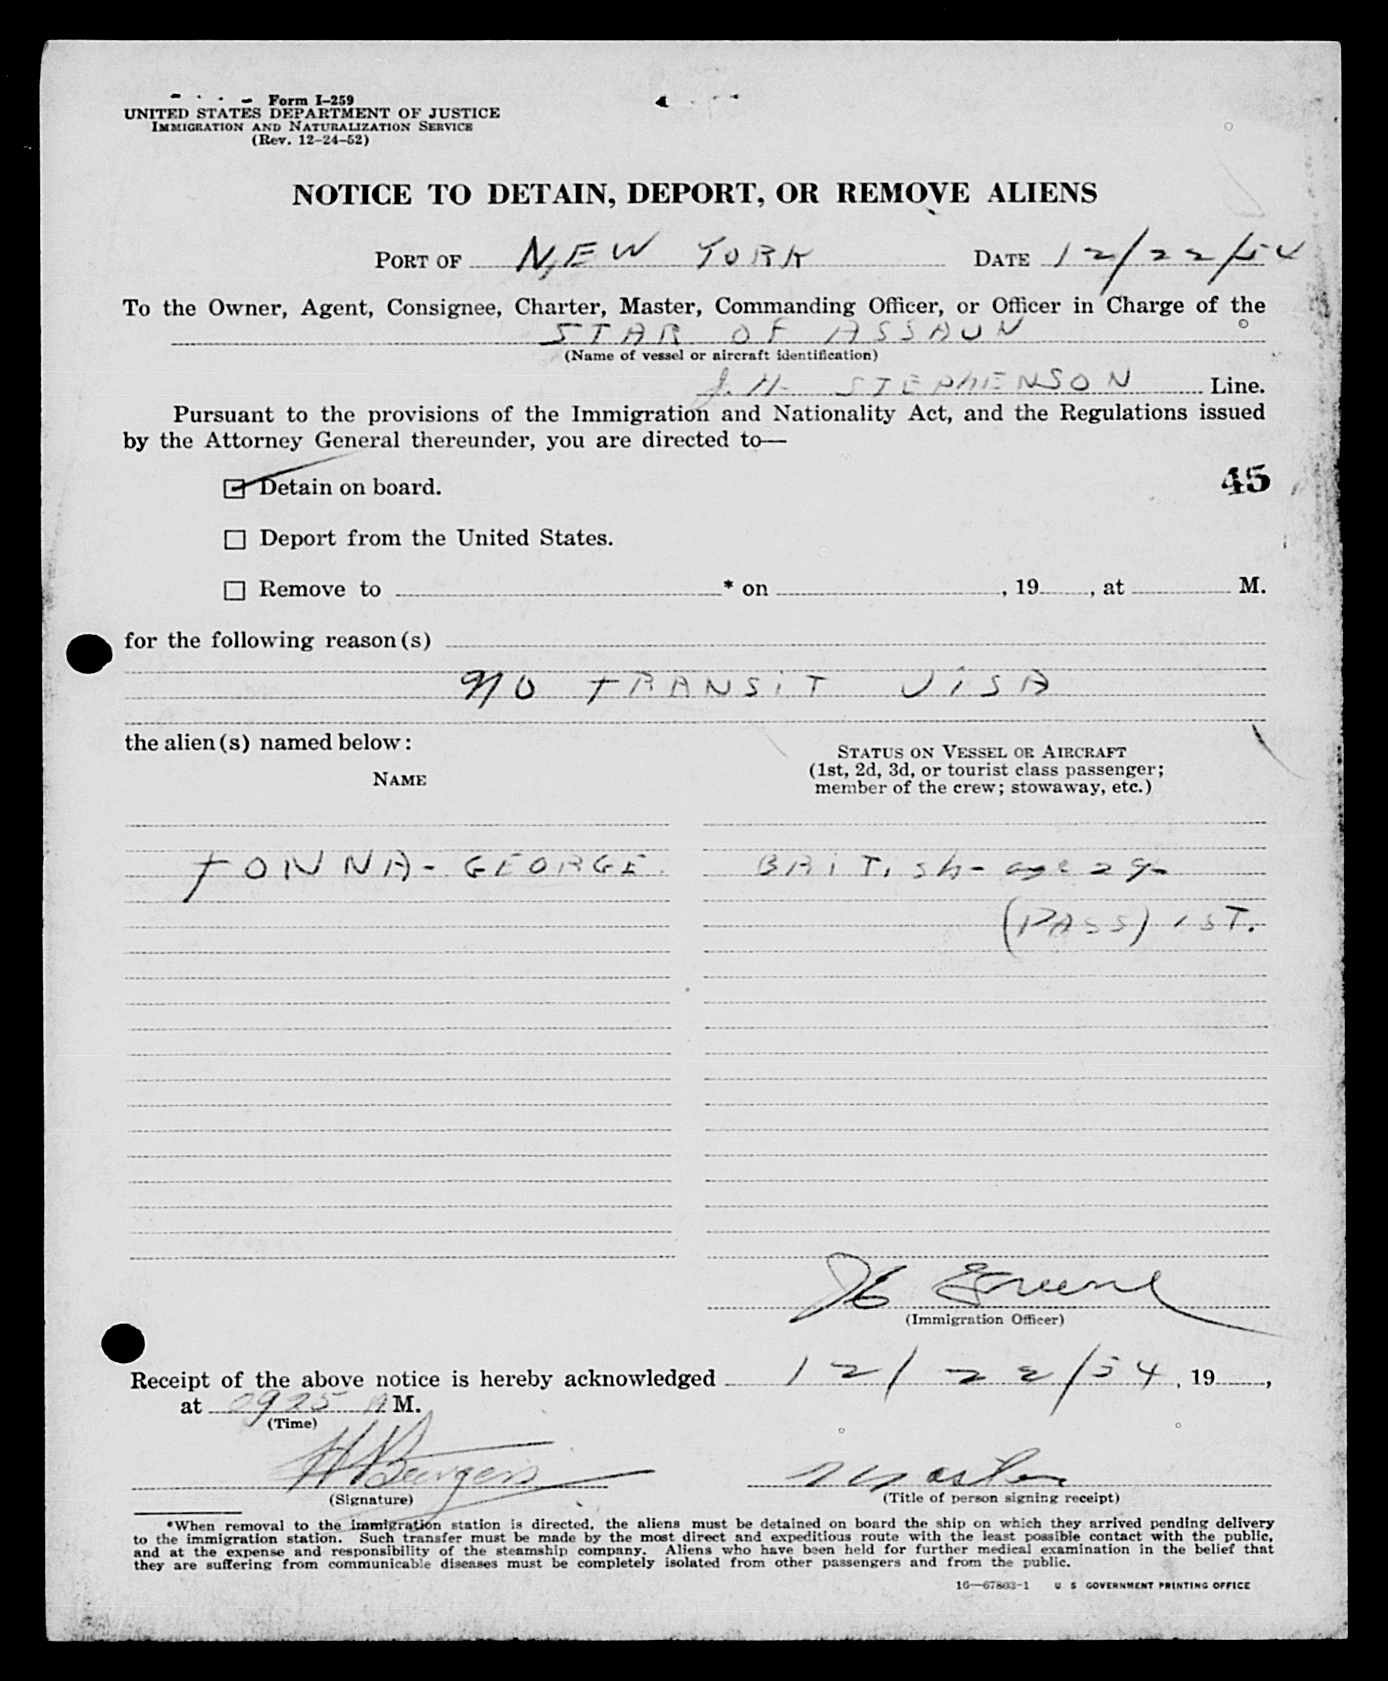 Form I-259
UNITED STATES DEPARTMENT OF JUSTICE
IMMIGRATION AND NATURALIZATION SERVICE
(Rev. 12-24-52)
NOTICE TO DETAIN, DEPORT, OR REMOVE ALIENS
PORT OF NEW YORK DATE 12/22/54
To the Owner, Agent, Consignee, Charter, Master, Commanding Officer, or Officer in Charge of the
STAR OF ASSAUN
(Name of vessel or aircraft identification)
J. H. STEPHENSON Line.
Pursuant to the provisions of the Immigration and Nationality Act, and the Regulations issued
by the Attorney General thereunder, you are directed to—
Detain on board.
45
Deport from the United States.
Remove to * on , 19 , at M.
for the following reason(s)
NO TRANSIT VISA
the alien(s) named below:
STATUS ON VESSEL OR AIRCRAFT
(1st, 2d, 3d, or tourist class passenger;
member of the crew; stowaway, etc.)
NAME
TONNA - GEORGE. BRITISH - age 29-
(PASS) 1ST.
Greene
(Immigration Officer)
Receipt of the above notice is hereby acknowledged 12/22/54, 19 ,
at 0925 A M.
(Time)
Master
(Signature) (Title of person signing receipt)
*When removal to the immigration station is directed, the aliens must be detained on board the ship on which they arrived pending delivery
to the immigration station. Such transfer must be made by the most direct and expeditious route with the least possible contact with the public,
and at the expense and responsibility of the steamship company. Aliens who have been held for further medical examination in the belief that
they are suffering from communicable diseases must be completely isolated from other passengers and from the public.
16—67803-1 U. S. GOVERNMENT PRINTING OFFICE